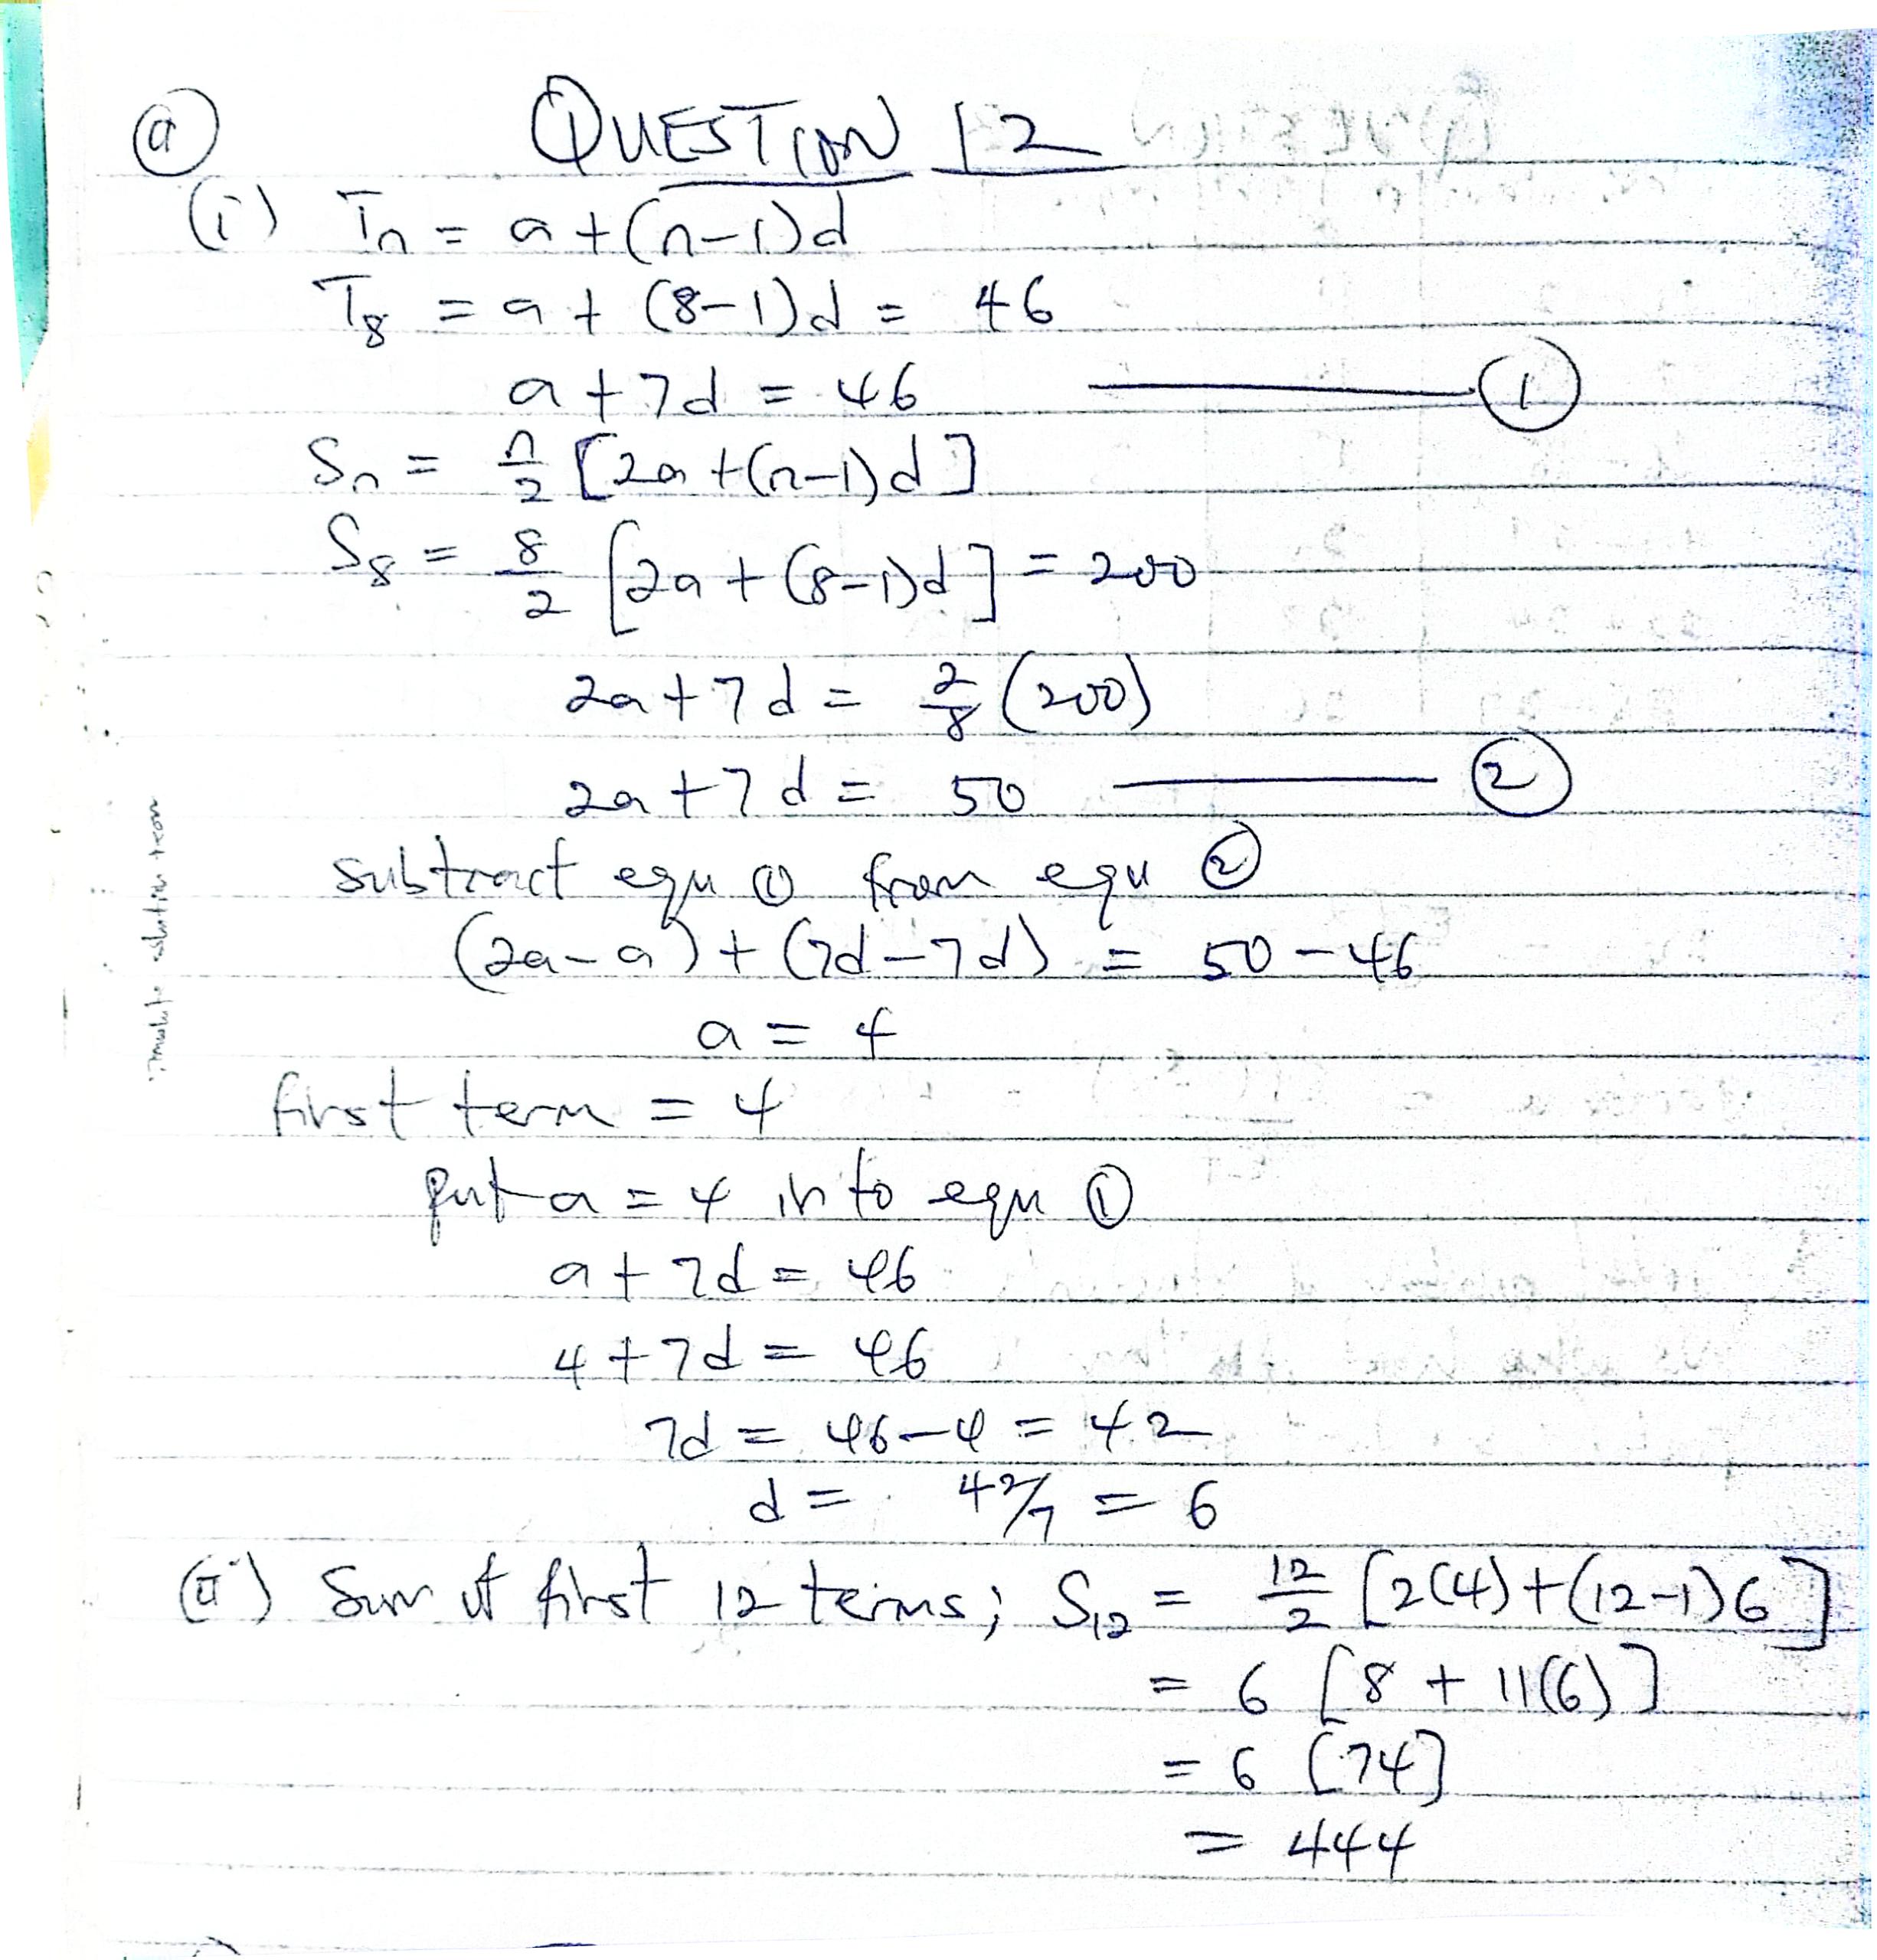 ⓐ QUESTION 12
(i) Tn = a + (n-1)d
T8 = a + (8-1)d = 46
a + 7d = 46 ——— ①
Sn = n/2 [2a + (n-1)d]
S8 = 8/2 [2a + (8-1)d] = 200
2a + 7d = 2/8 (200)
2a + 7d = 50 ——— ②
subtract equ ① from equ ②
(2a - a) + (7d - 7d) = 50 - 46
a = 4
first term = 4
put a = 4 into equ ①
a + 7d = 46
4 + 7d = 46
7d = 46 - 4 = 42
d = 42/7 = 6
(ii) Sum of first 12 terms; S12 = 12/2 [2(4) + (12-1)6]
= 6 [8 + 11(6)]
= 6 [74]
= 444